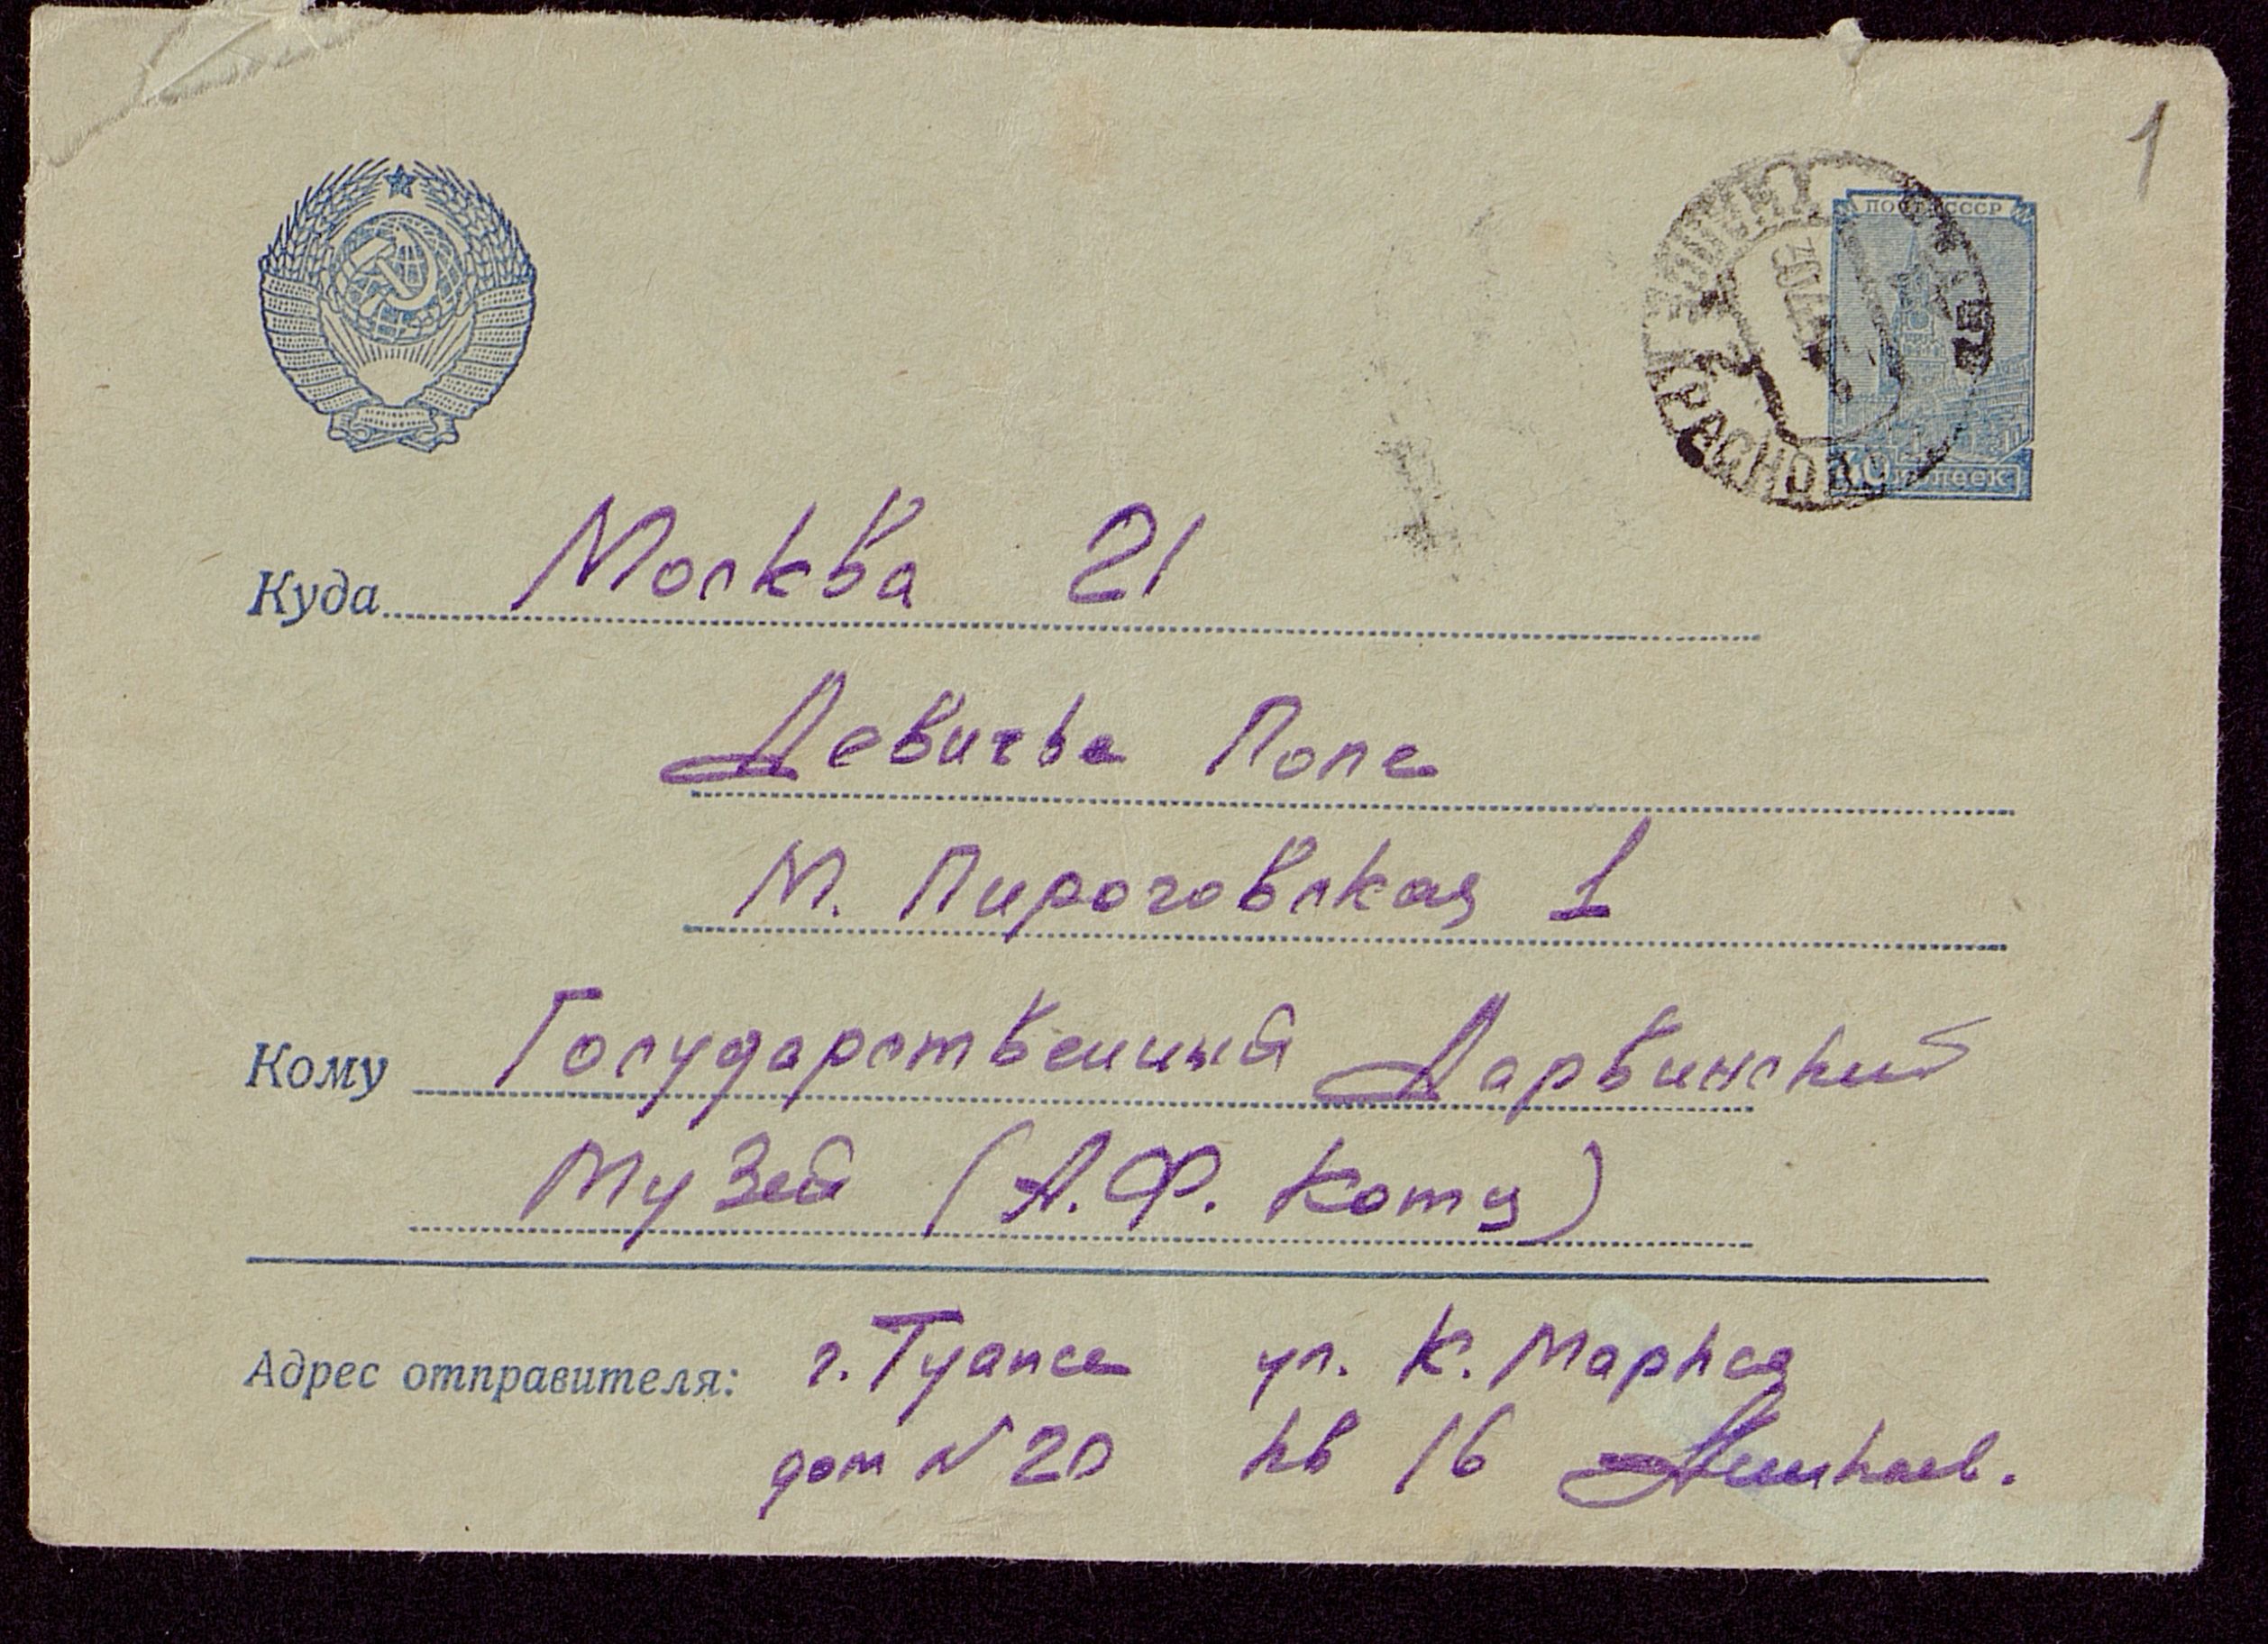 1
ПОЧТА СССР
40 копеек
Куда Москва 21
Девичье Поле
М. Пироговская 1
Кому Государственный Дарвинский
Музей (А.Ф. Котц)
Адрес отправителя: г. Туапсе ул. К. Маркса
дом N 20 кв 16